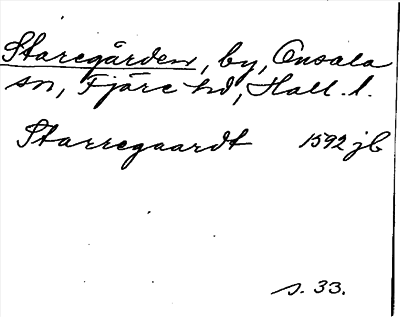 Staregården, by, Onsala
sn, Fjäre hd, Hall. l.
Starregaardt 1592 jb
s. 33.